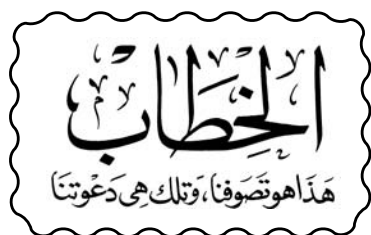 الخِطَاب
هَذَا هو تصَوفنا، وَتلك هِى دَعْوتنَا